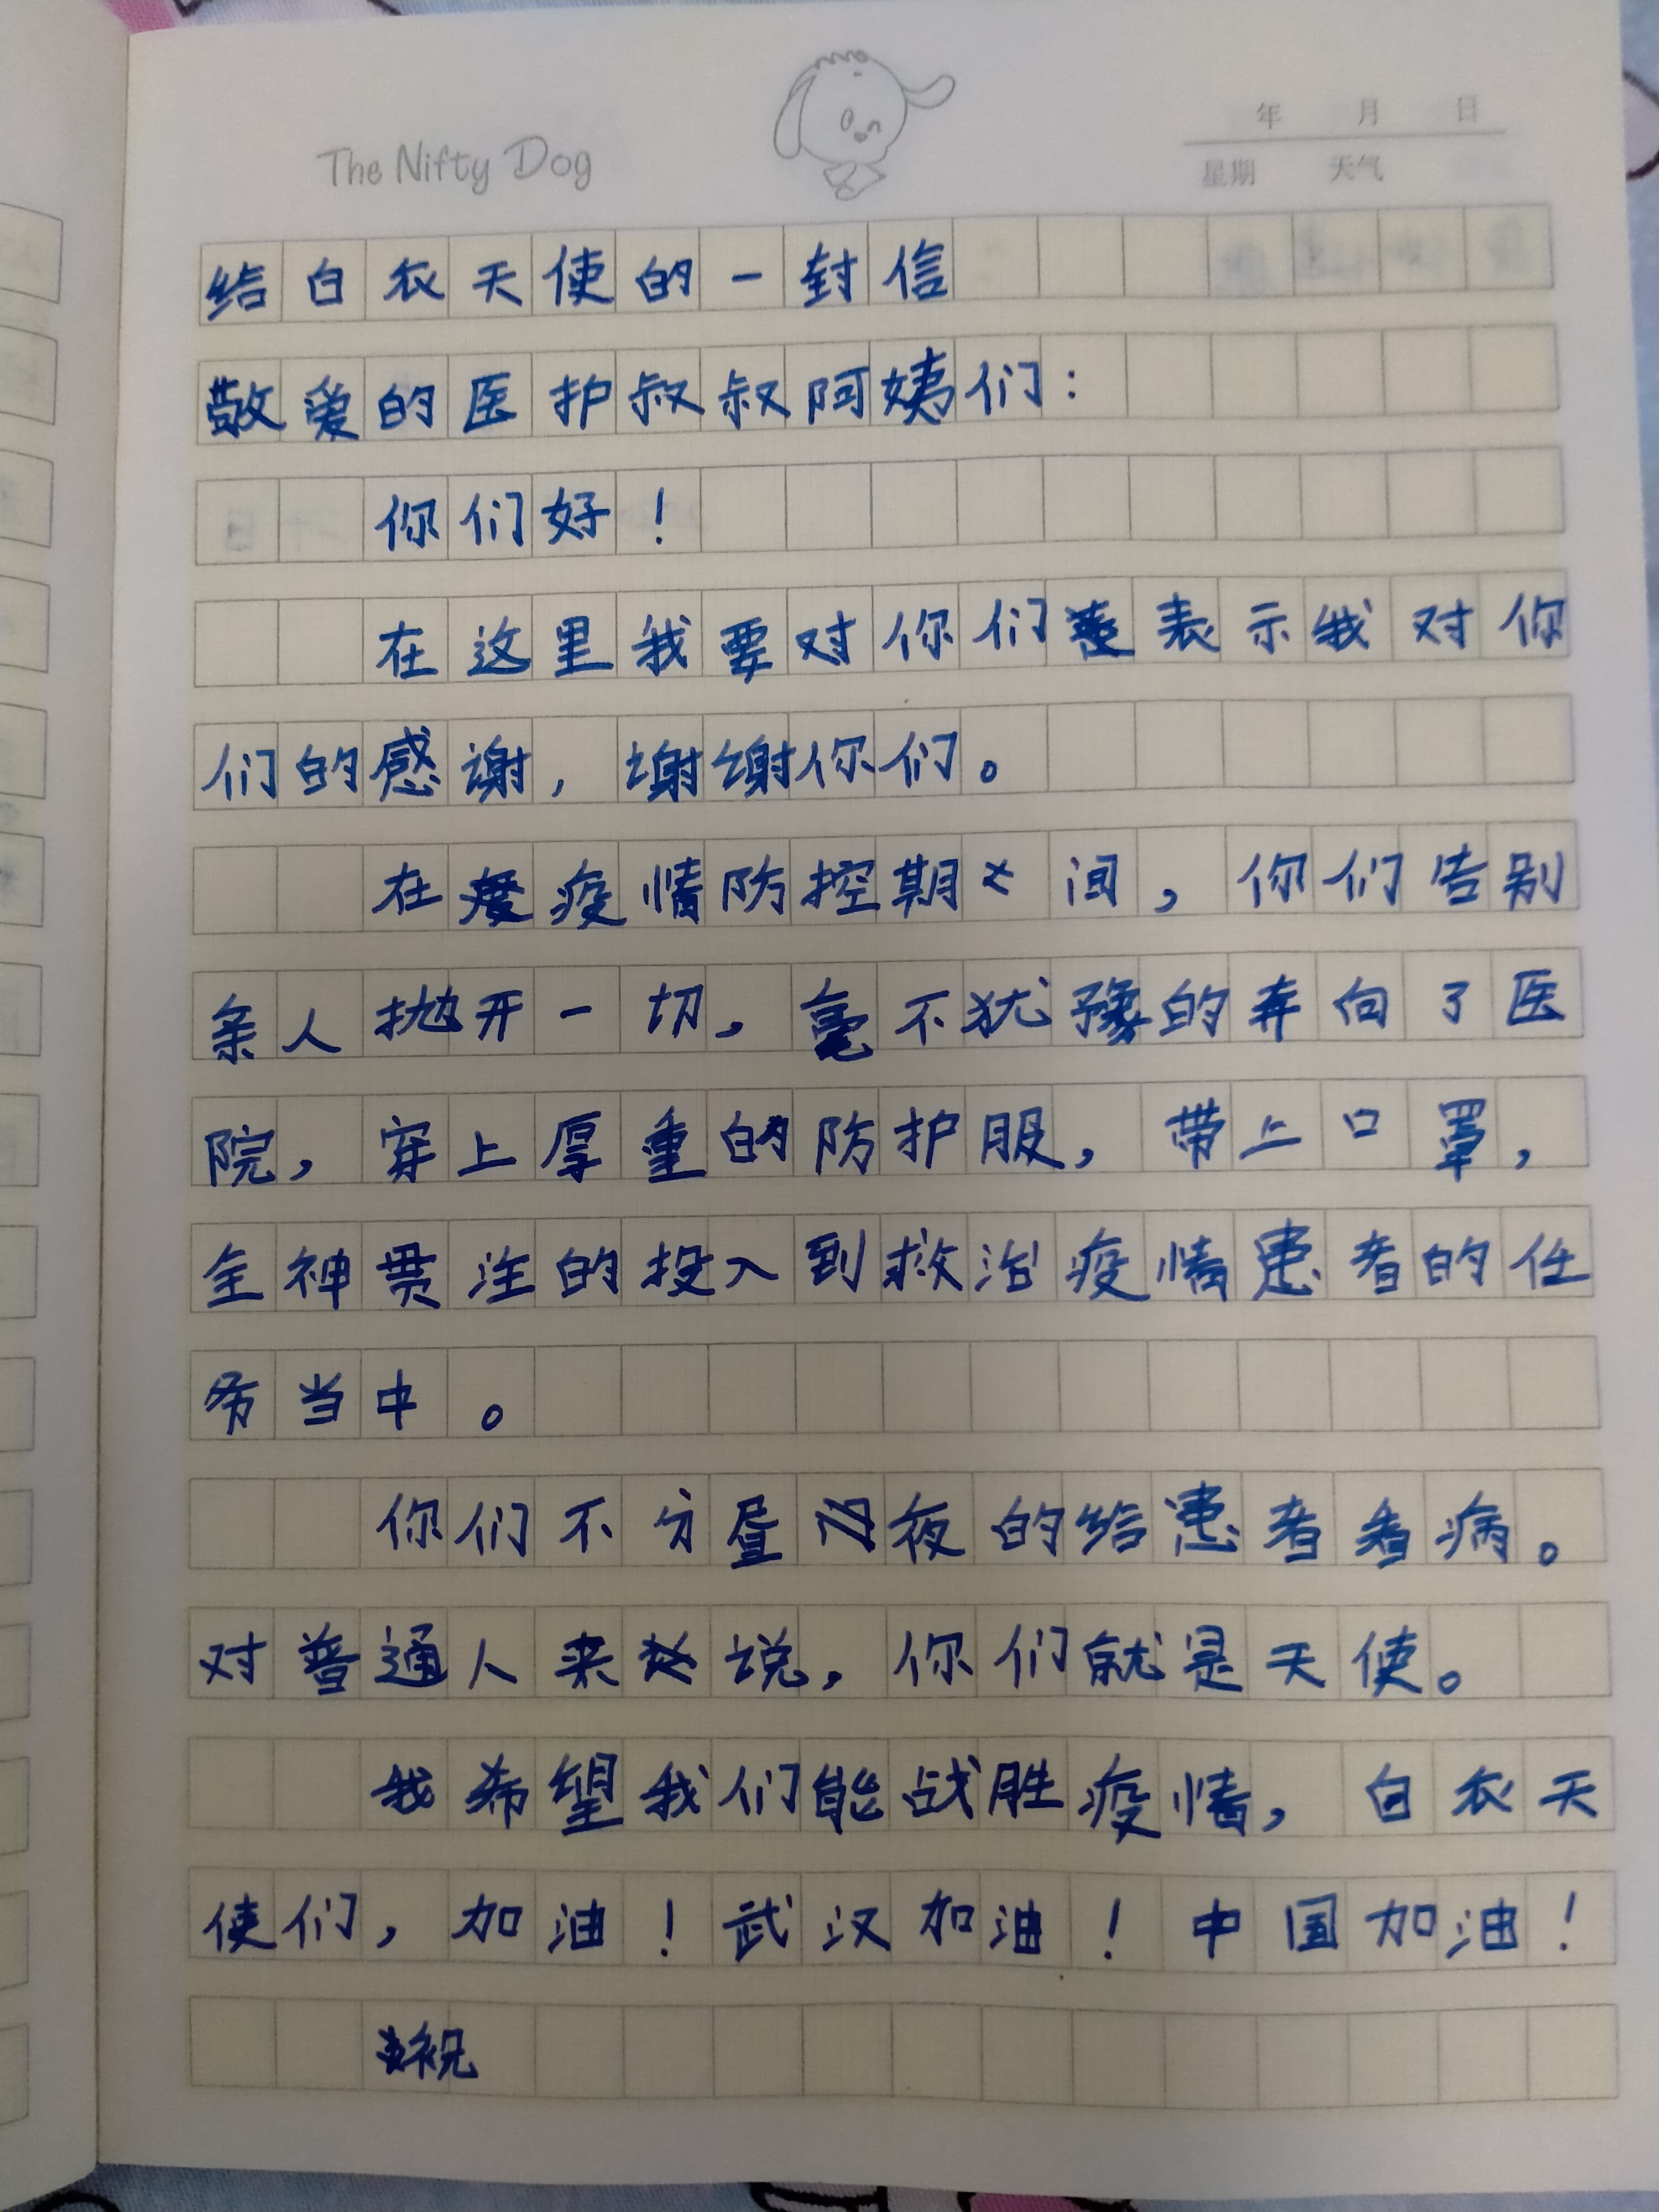 The Nifty Dog
年 月 日
星期 天气
给白衣天使的一封信
敬爱的医护叔叔阿姨们：
你们好！
在这里我要对你们表示我对你
们的感谢，谢谢你们。
在疫情防控期间，你们告别
亲人抛开一切，毫不犹豫的奔向了医
院，穿上厚重的防护服，带上口罩，
全神贯注的投入到救治疫情患者的任
务当中。
你们不分昼夜的给患者看病。
对普通人来说，你们就是天使。
我希望我们能战胜疫情，白衣天
使们，加油！武汉加油！中国加油！
祝